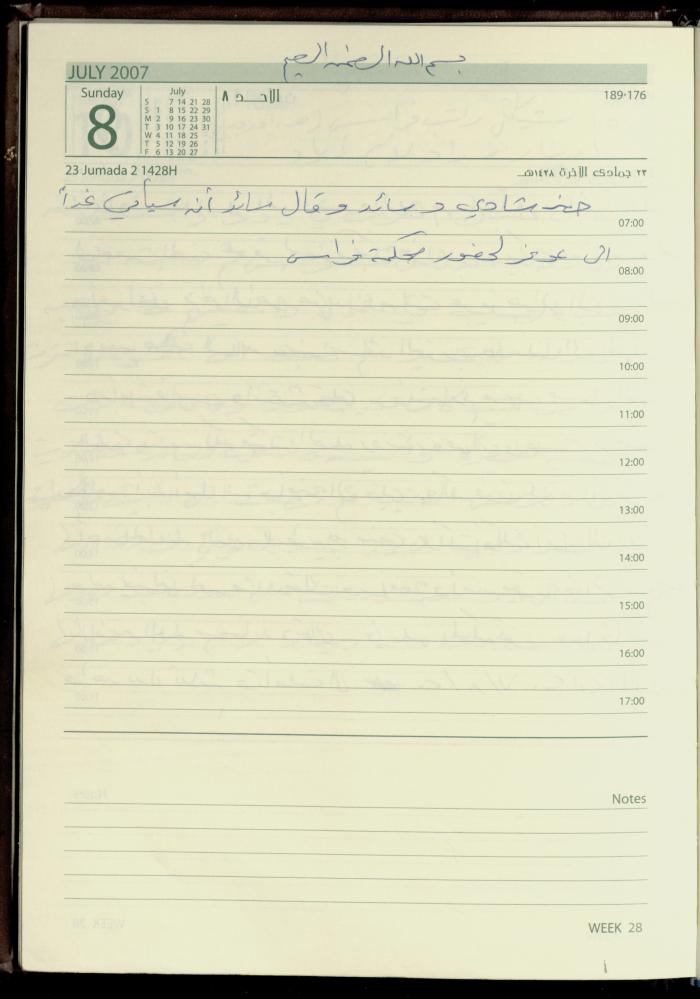 بسم الله الرحمن الرحيم
JULY 2007
Sunday
8
July
S 7 14 21 28
S 1 8 15 22 29
M 2 9 16 23 30
T 3 10 17 24 31
W 4 11 18 25
T 5 12 19 26
F 6 13 20 27
الأحد ٨
189-176
23 Jumada 2 1428H
٢٣ جمادى الآخرة ١٤٢٨هـ
حضر شادي و سائد و قال سائد أنه سيأتي غداً
07:00
الى عوفر لحضور محكمة فراس
08:00
09:00
10:00
11:00
12:00
13:00
14:00
15:00
16:00
17:00
Notes
WEEK 28